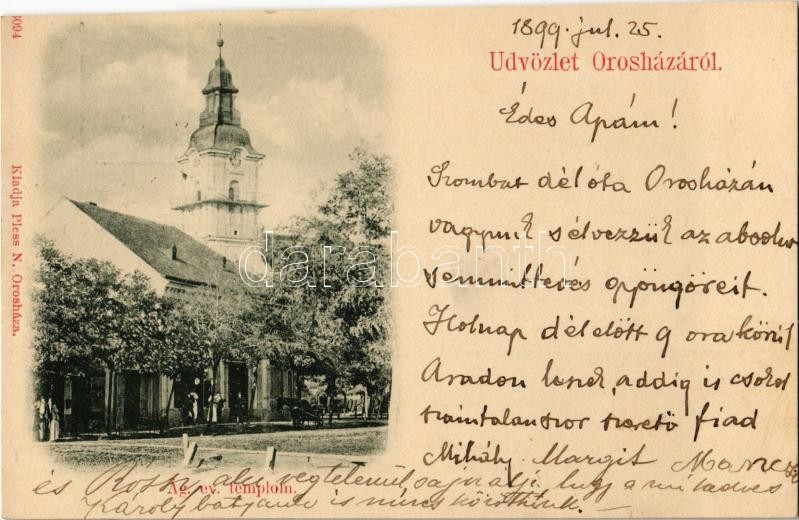 1899. jul. 25.
Udvözlet Orosházáról.
Édes Apám!
Szombat dél óta Orosházán
vagyunk s élvezzük az absolut
semmittevés gyöngöreit.
Holnap délelőtt 9 ora körül
Aradon leszek, addig is csokol
szamtalanszor szerető fiad
Mihály Margit
és Rószi, aki végtelenül sajnálja, hogy a mi kedves
Ág. ev. templom.
Károly bátyánk is nincs körötünk.
3094
Kiadja Pless N. Orosháza.
darabanth